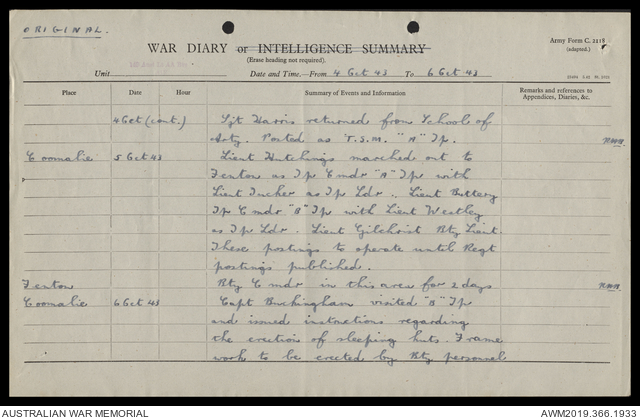 ORIGINAL.
Army Form C. 2118
(adapted.)
WAR DIARY or INTELLIGENCE SUMMARY
(Erase heading not required).
Unit
Date and Time.—From 4 Oct 43 To 6 Oct 43
Place Date Hour Summary of Events and Information Remarks and references to Appendices, Diaries, &c.
4 Oct (cont.) Sgt Harris returned from School of
Arty. Posted as T.S.M. "A" Tp.
Coomalie 5 Oct 43 Lieut Hutchings marched out to
Fenton as Tp Cmdr "A" Tp with
Lieut Tucker as Tp Ldr. Lieut Buttery
Tp Cmdr "B" Tp with Lieut Westley
as Tp Ldr. Lieut Gilchrist Bty Lieut
These postings to operate until Regt
postings published.
Fenton Bty Cmdr in this area for 2 days
Coomalie 6 Oct 43 Capt Buckingham visited "B" Tp
and issued instructions regarding
the erection of sleeping huts. Frame
work to be erected by Bty personnel
AUSTRALIAN WAR MEMORIAL
AWM2019.366.1933